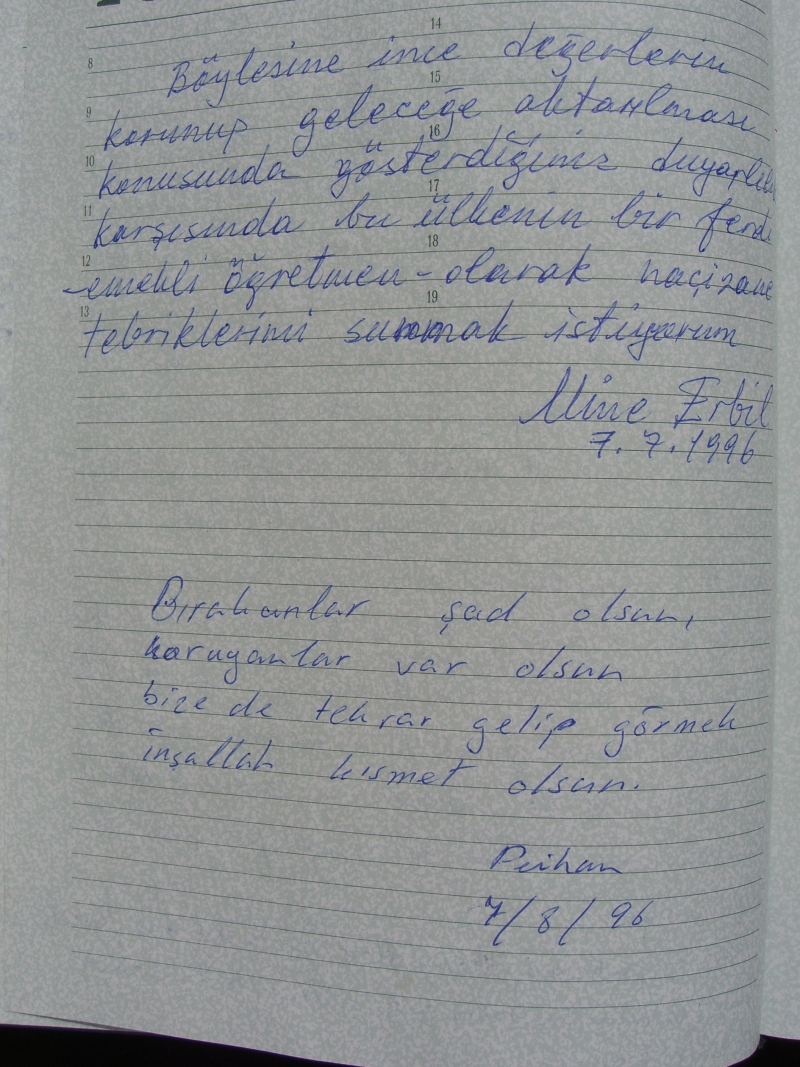 14
8
Böylesine ince değerlerin
15
9
korunup geleceğe aktarılması
16
10
konusunda gösterdiğiniz
17
11
karşısında bu ülkenin bir ferdi
12
18
-emekli öğretmen- olarak naçizane
13
19
tebriklerimi sunmak istiyorum
Mine Erbil
7.7.1996
Bırakanlar şad olsun,
koruyanlar var olsun
bize de tekrar gelip görmek
inşallah kısmet olsun.
Perihan
7/8/96